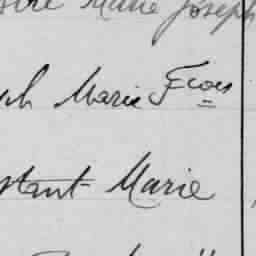 Marie Joseph
ph Marie Fcois
stant Marie